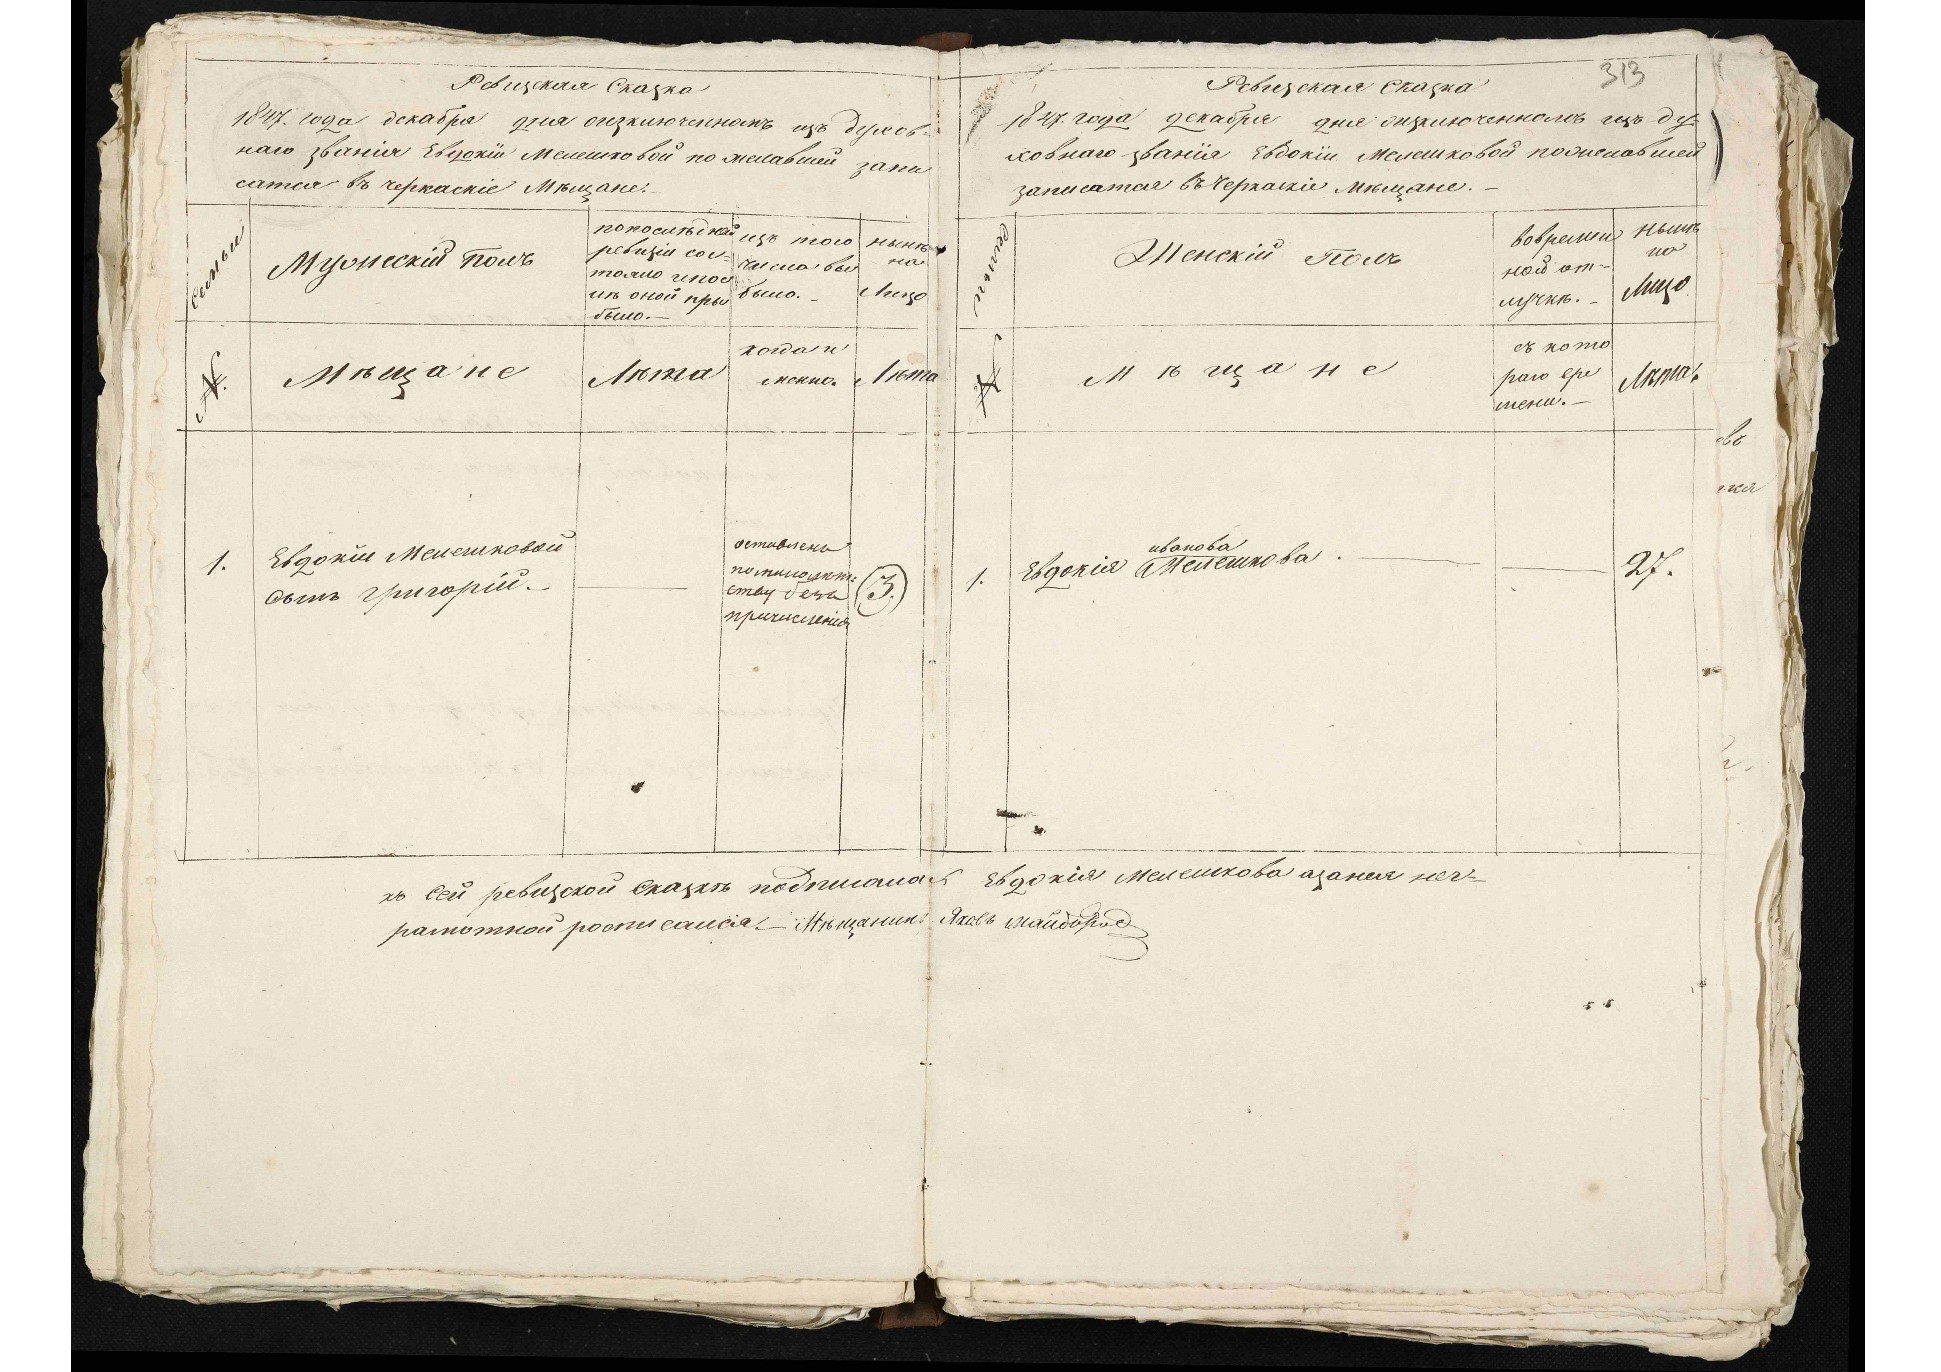 Ревизская Сказка
1847. года декабря дня оизключенномъ изъ духов-
наго званія Евдокіи Мелешковой пожелавшей запи
сатся въ черкаскіе Мѣщане.
семьи
Мужескій Полъ
попоследнѣй
ревизіи сос-
тояло ипос
лѣ оной при
было.—
изъ того
числа вы
было.—
нынѣ
на
Лицо
№.
Мѣщане
Лѣта
когда и
менно.
Лѣта
1.
Евдокіи Мелешковой
сынъ григорій.—
оставленъ
помалолѣт-
ству безъ
причисленія
3.
313
Ревизская Сказка
1847. года декабря дня оизключенномъ изъ ду-
ховнаго званія Евдокіи Мелешковой пожелавшей
записатся въ Черкаскіе Мѣщане.—
Семьи
Женскій Полъ
вовремен
ной от-
лучкѣ.—
Нынѣ
на
Лицо
№
Мѣщане
съ кото
раго вре
мени.—
Лѣта.
1.
Евдокія иванова Мелешкова.
27.
къ сей ревизской Сказкѣ подписалась Евдокія Мелешкова азанея негъ-
рамотной росписался Мѣщанинъ Яковъ Майборода